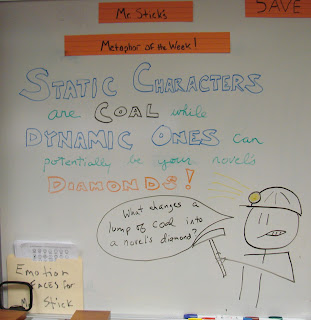 Mr. Stick's
SAVE
Metaphor of the Week!
STATIC CHARACTERS
are COAL while
DYNAMIC ONES can
potentially be your novel's
DIAMONDS!
What changes a
lump of coal into
a novel's diamond?
Emotion
Faces for
Mr. Stick